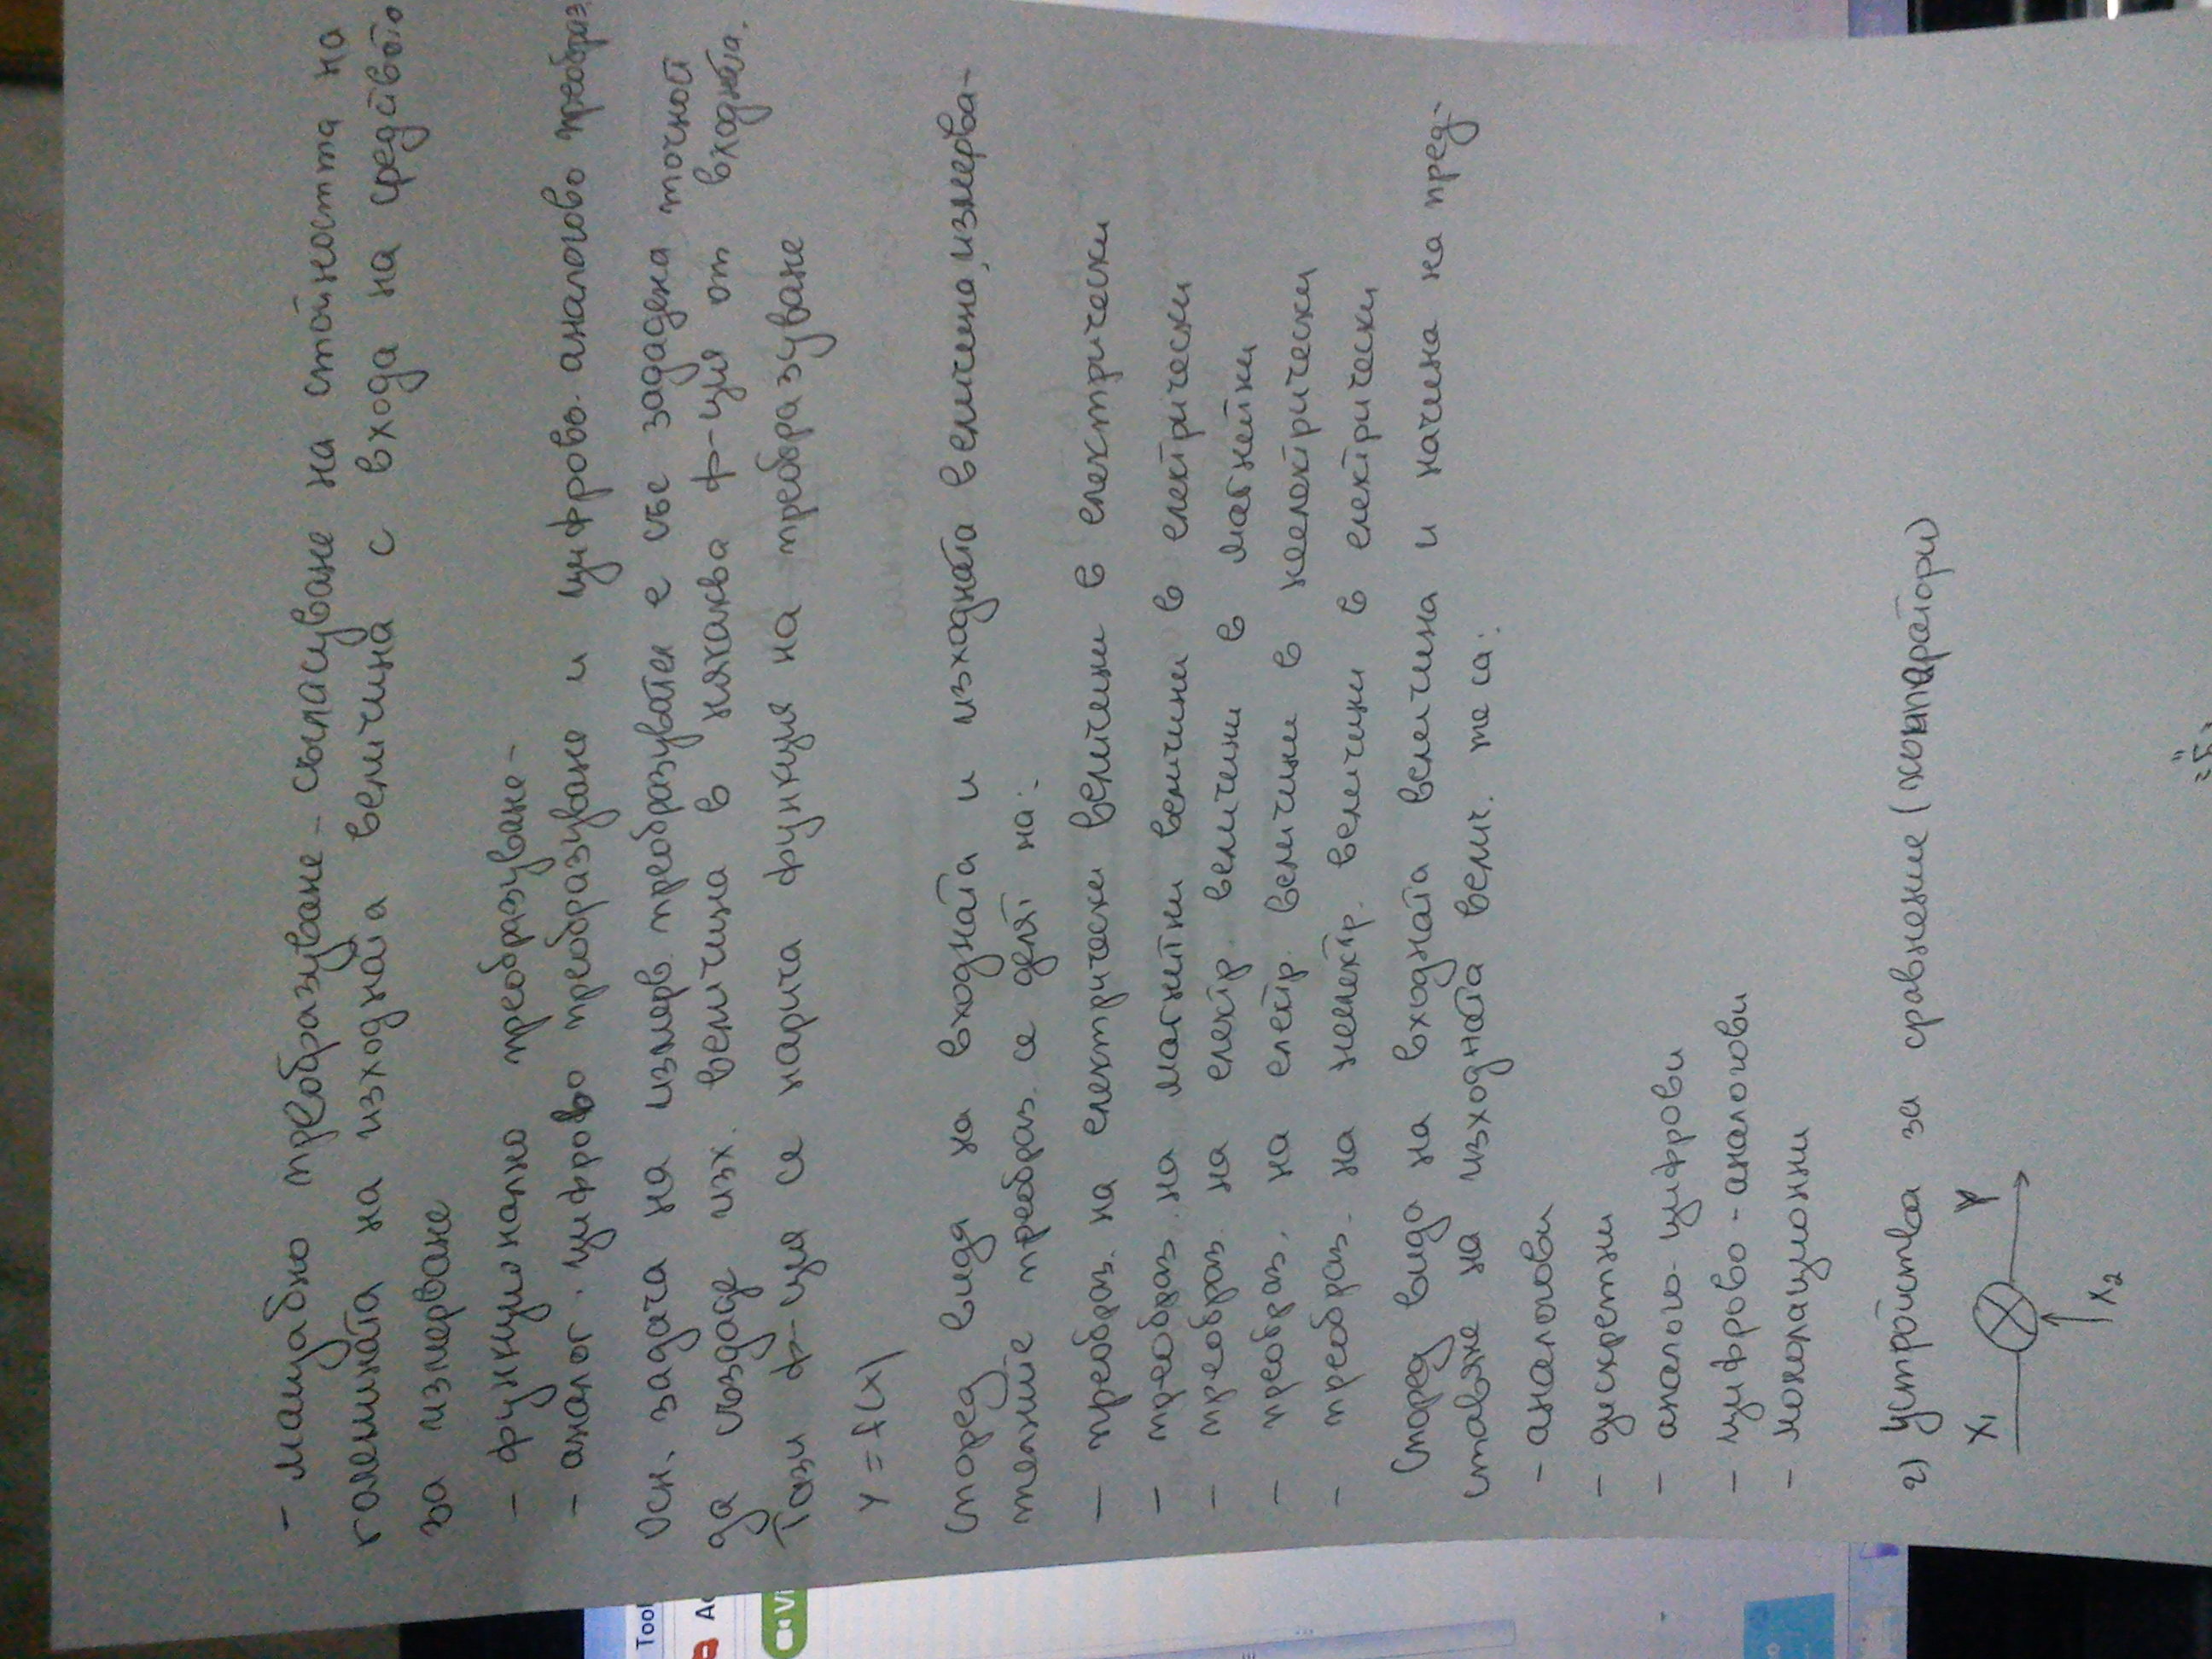 - мащабно преобразуване - съгласуване на стойността на
големината на изходната величина с входа на средството
за измерване
- функционално преобразуване -
- аналог. цифрово преобразуване и цифрово. аналогово преобраз.
Осн. задача на измерв. преобразувател е със зададена точност
да създаде изх. величина в някаква ф-ция от входната.
Тази ф-ция се нарича функция на преобразуване
Y = f(x)
Според вида на входната и изходната величина, измерва-
телните преобраз. се делят на:
- преобраз. на електрически величини в електрически
- преобраз. на магнитни величини в електрически
- преобраз. на електр. величини в магнитни
- преобраз. на електр. величини в неелектрически
- преобраз. на неелектр. величини в електрически
Според вида на входната величина и начина на пред-
ставяне на изходната велич. те са:
- аналогови
- дискретни
- аналого-цифрови
- цифрово-аналогови
г) Устройства за сравнение (компаратори)
X1 Y
X2
Tool